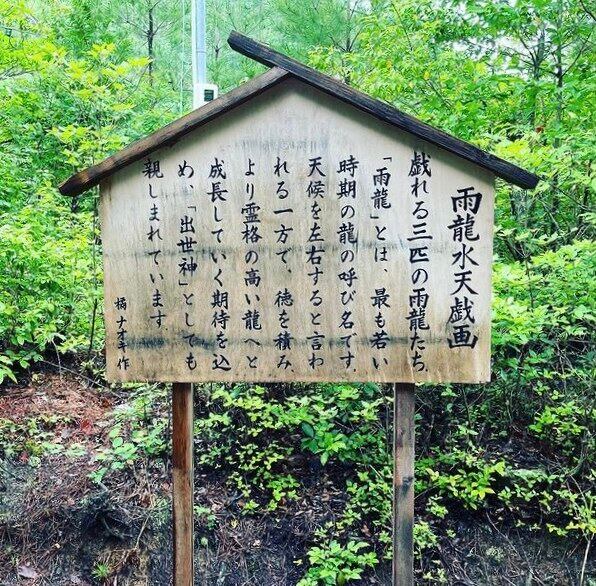 雨龍水天戯画
戯れる三匹の雨龍たち
「雨龍」とは、最も若い
時期の龍の呼び名です。
天候を左右すると言わ
れる一方で、徳を積み
より霊格の高い龍へと
成長していく期待を込
め、「出世神」としても
親しまれています
橘 ナオキ 作